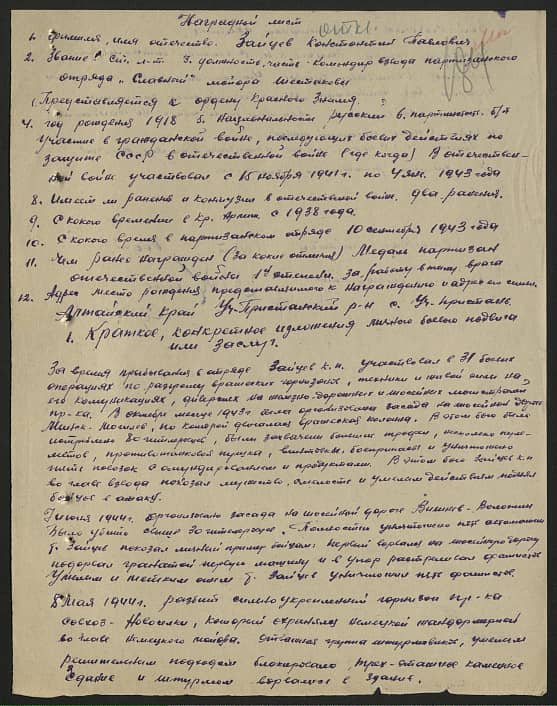 Наградной лист
1. Фамилия, имя отчество. Зайцев Константин Павлович
2. Звание: Ст. л-т. 3. должность, часть - Командир взвода партизанского
отряда "Славный" майора Шестакова
Представляется к ордену Красного Знамя.
4. год рождения 1918 5. Национальность русский 6. партийность. б/п
Участие в гражданской войне, последующих боевых действиях по
защите СССР в отечественной войне (где когда) В отечествен-
ной войне участвовал с 15 ноября 1941г. по 1943 года
8. Имеет ли ранения и контузии в отечественной войне. два ранения.
9. С какого времени в Кр. Армии. с 1938 года.
10. С какого время в партизанском отряде 10 сентября 1943 года
11. Чем ранее награжден (За какие отличия) Медаль партизан
отечественной войны 1й степени. за работу в тылу врага
12. Адрес место рождения представляемого к награждению и адрес его семьи.
Алтайский край Уч-Пристанский р-н с. Уч-Пристань.
1. Краткое, конкретное изложения личного боевого подвига
или заслуг.
За время пребывания в отряде Зайцев К.П. участвовал в 31 боевых
операциях по разгрому вражеских гарнизонов, техники и живой силы на
его коммуникациях, диверсиях на железно-дорожных и шоссейных магистралях
пр-ка. В октябре месяце 1943г. была организована засада на шоссейной дороге
Минск-Могилев, по которой двигалась вражеская колонна. В этом бою было
истреблено 30 гитлеровцев, были захвачены большие трофеи, несколько пуле-
метов, противотанковая пушка, винтовки, боеприпасы и уничтожено
повозок с обмундированием и продуктами. В этом бою Зайцев К.П.
во главе взвода показал мужество, смелость и умелым действием поднял
бойцов в атаку.
июня 1944г. организована засада на шоссейной дороге Вишнев-Воложин
было убито свыше 30 гитлеровцев. Полностью уничтожено пять автомашин
т. Зайцев показал личный пример бойцам: первый ворвался на шоссейную дорогу
подорвал гранатой первую машину и в упор расстреливал фашистов
Умелым и метким огнем т. Зайцев уничтожил пять фашистов.
8 Мая 1944г. Разбит сильно укрепленный гарнизон пр-ка
совхоз-Новоселки, который охранялся немецкой жандармерией
во главе немецкого майора. отважная группа штурмовиков, умелым
решительным подходом блокировала трех-этажное каменное
здание и штурмом ворвались в здание.